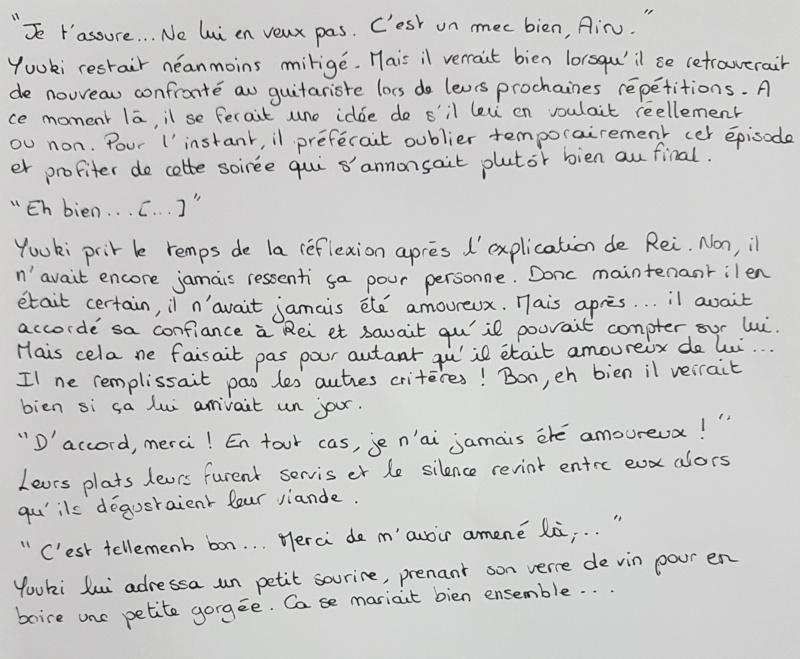 "Je t'assure... Ne lui en veux pas. C'est un mec bien, Airu."
Yuuki restait néanmoins mitigé. Mais il verrait bien lorsqu'il se retrouverait
de nouveau confronté au guitariste lors de leurs prochaines répétitions. A
ce moment là, il se ferait une idée de s'il lui en voulait réellement
ou non. Pour l'instant, il préférait oublier temporairement cet épisode
et profiter de cette soirée qui s'annonçait plutôt bien au final.
"Eh bien... [...]"
Yuuki prit le temps de la réflexion après l'explication de Rei. Non, il
n'avait encore jamais ressenti ça pour personne. Donc maintenant il en
était certain, il n'avait jamais été amoureux. Mais après... il avait
accordé sa confiance à Rei et savait qu'il pouvait compter sur lui.
Mais cela ne faisait pas pour autant qu'il était amoureux de lui...
Il ne remplissait pas les autres critères ! Bon, eh bien il verrait
bien si ça lui arrivait un jour.
"D'accord, merci ! En tout cas, je n'ai jamais été amoureux !"
Leurs plats leurs furent servis et le silence revint entre eux alors
qu'ils dégustaient leur viande.
"C'est tellement bon... Merci de m'avoir amené là,..."
Yuuki lui adressa un petit sourire, prenant son verre de vin pour en
boire une petite gorgée. Ca se mariait bien ensemble...